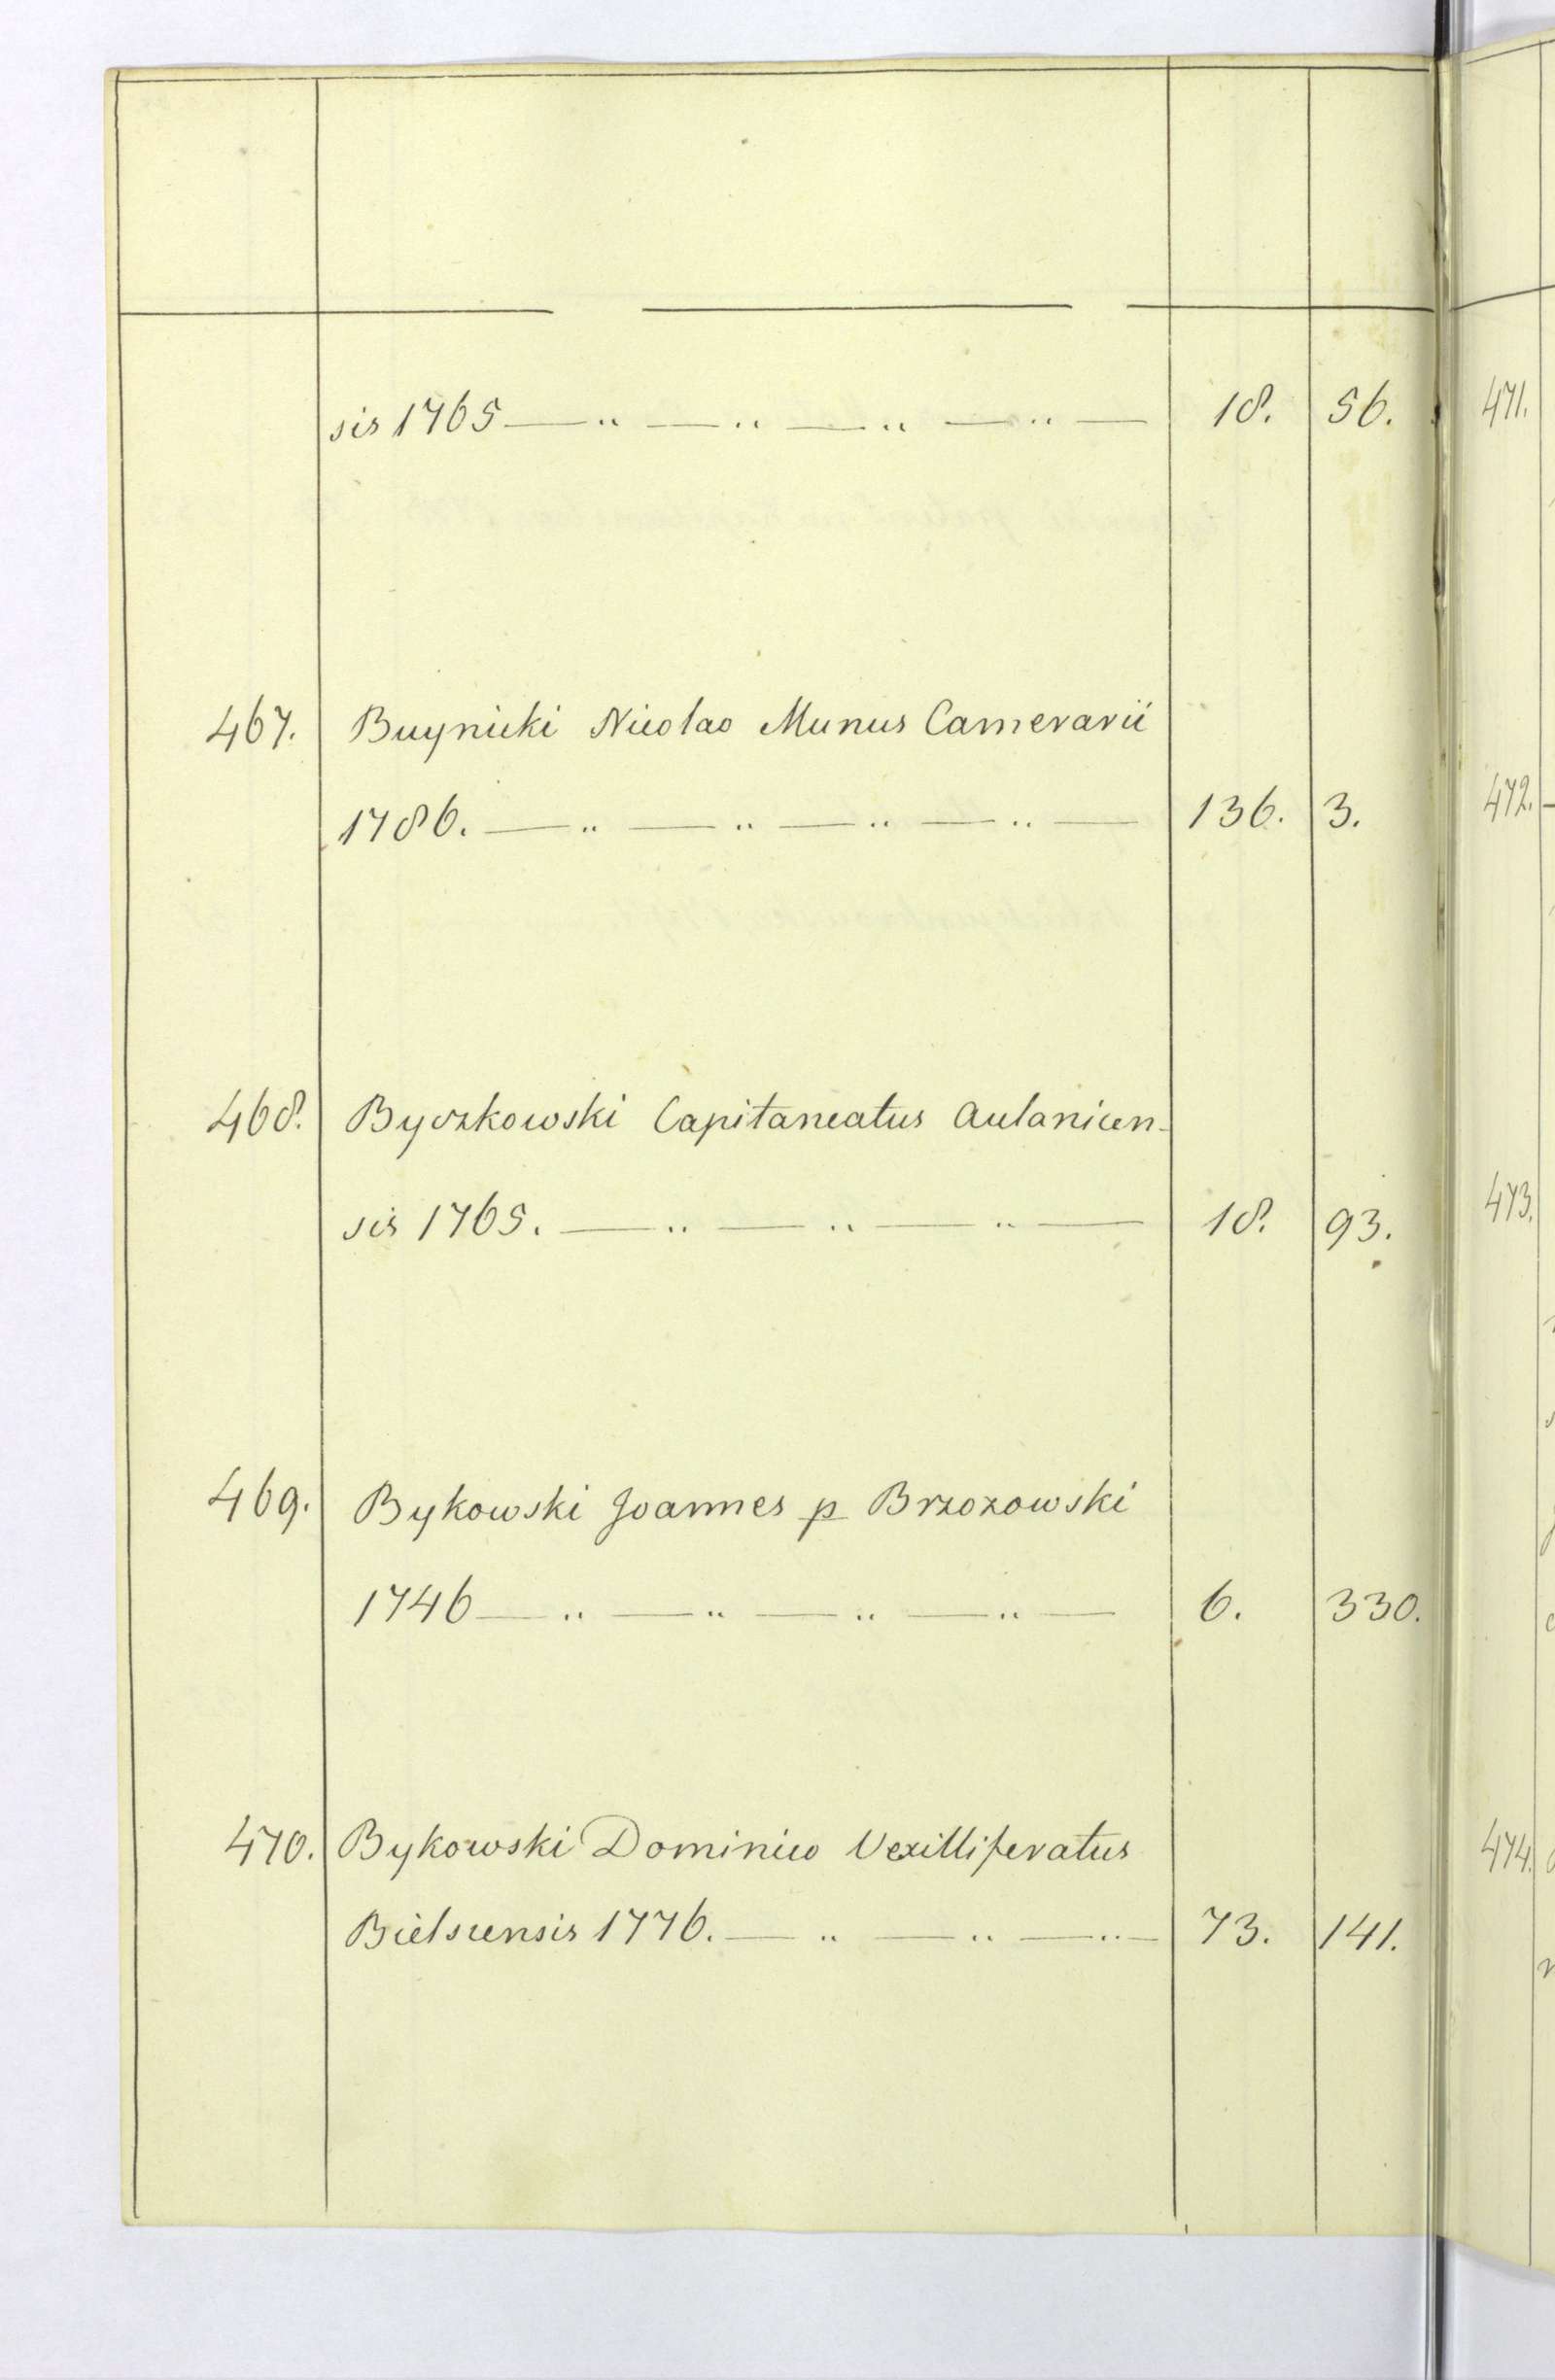 sis 1765 — „ — „ — „ — „ — 18. 56.
467. Buynicki Nicolao Munus Camerarii
1786. — „ — „ — „ — „ — 136. 3.
468. Byczkowski Capitaneatus Aulanicen-
sis 1765. — „ — „ — „ — 18. 93.
469. Bykowski Joannes p Brzozowski
1746 — „ — „ — „ — „ — 6. 330.
470. Bykowski Dominico Vexilliferatus
Bielscensis 1776. — „ — „ — „ — 73. 141.
471.
472.
473.
474.